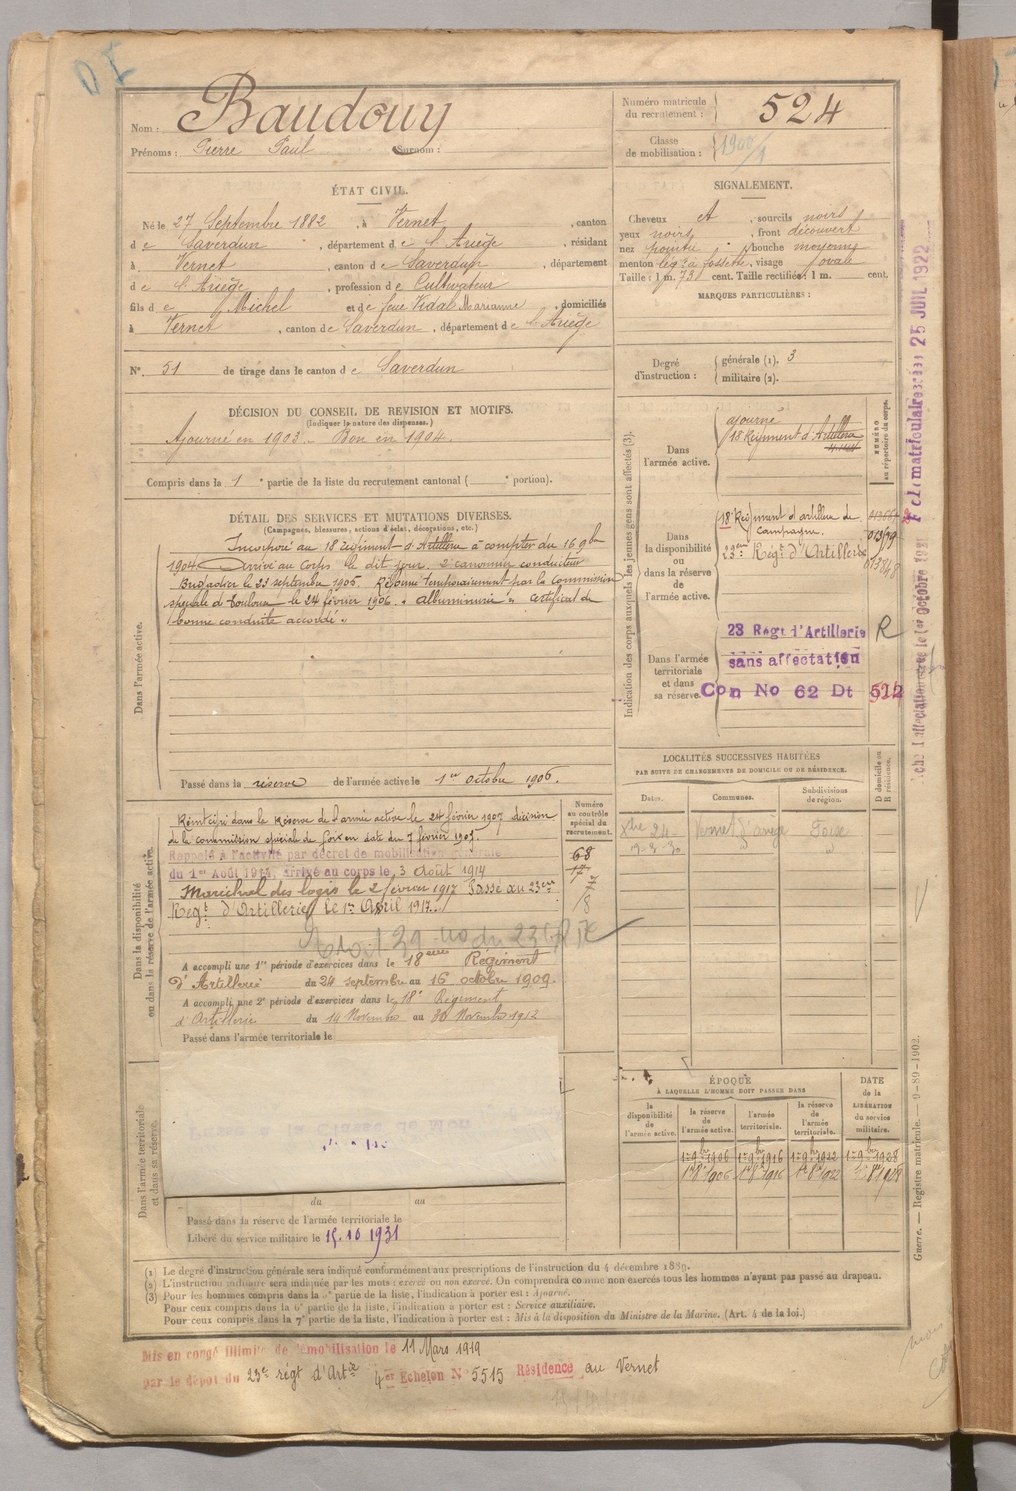 Nom : Baudouy
Prénoms : Pierre Paul Surnom :
Numéro matricule du recrutement : 524
Classe de mobilisation : 1902/1
ÉTAT CIVIL.
Né le 27 Septembre 1882, à Vernet, canton
de Saverdun, département de l'Ariège, résidant
à Vernet, canton de Saverdun, département
de l'Ariège, profession de Cultivateur
fils de Michel et de feue Vidal Marianne, domiciliés
à Vernet, canton de Saverdun, département de l'Ariège
N° 51 de tirage dans le canton de Saverdun
SIGNALEMENT.
Cheveux ct, sourcils noirs
yeux noirs, front découvert
nez pointu, bouche moyenne
menton à fossette, visage ovale
Taille : 1 m. 73 cent. Taille rectifiée : 1 m. cent.
MARQUES PARTICULIÈRES :
Degré d'instruction : générale (1). 3
militaire (2).
DÉCISION DU CONSEIL DE REVISION ET MOTIFS.
(Indiquer la nature des dispenses.)
Ajourné en 1903. Bon en 1904.
Compris dans la 1e partie de la liste du recrutement cantonal ( e portion).
DÉTAIL DES SERVICES ET MUTATIONS DIVERSES.
(Campagnes, blessures, actions d'éclat, décorations, etc.)
Dans l'armée active.
Incorporé au 18 régiment d'Artillerie à compter du 16 9bre
1904. Arrivé au Corps le dit jour. 2 canonnier conducteur
Brigadier le 23 septembre 1905. Réformé temporairement par la Commission
spéciale de Toulouse le 24 février 1906. « albuminurie » Certificat de
bonne conduite accordé.
Passé dans la réserve de l'armée active le 1er octobre 1906.
Indication des corps auxquels les jeunes gens sont affectés (3).
NUMÉRO au répertoire du corps.
Dans l'armée active.
ajourné
18 Régiment d'Artillerie
Dans la disponibilité ou dans la réserve de l'armée active.
18 Régiment d'artillerie de
campagne.
23ème Régt d'Artillerie
Dans l'armée territoriale et dans sa réserve.
23 Régt d'Artillerie R
sans affectation
Con No 62 Dt 512
Fche matriculaire créée 25 JUIL 1922
LOCALITÉS SUCCESSIVES HABITÉES
PAR SUITE DE CHANGEMENTS DE DOMICILE OU DE RÉSIDENCE.
Dates. Communes. Subdivisions de région. D domicile ou R résidence.
Vernet d'Ariège Foix
Dans la disponibilité ou dans la réserve de l'armée active.
Numéro au contrôle spécial du recrutement.
68
Réintégré dans la Réserve de l'armée active le 24 février 1907 décision
de la commission spéciale de Foix en date du 7 février 1907.
Rappelé à l'activité par décret de mobilisation générale
du 1er Août 1914, arrivé au corps le 3 Août 1914
Maréchal des logis le 2 février 1917 Passé au 23ème
Régt d'Artillerie le 1er Avril 1917.
A accompli une 1re période d'exercices dans le 18ème Régiment
d'Artillerie du 24 septembre au 16 octobre 1909.
A accompli une 2e période d'exercices dans le 18e Régiment
d'Artillerie du 14 Novembre au 30 Novembre 1912
Passé dans l'armée territoriale le
Dans l'armée territoriale et dans sa réserve.
du au
Passé dans la réserve de l'armée territoriale le
Libéré du service militaire le 15.10 1931
ÉPOQUE
À LAQUELLE L'HOMME DOIT PASSER DANS
DATE de la LIBÉRATION du service militaire.
la disponibilité de l'armée active. la réserve de l'armée active. l'armée territoriale. la réserve de l'armée territoriale.
1er 9bre 1906 1er 9bre 1916 1er 9bre 1922 1er 9bre 1928
1er 8bre 1906 1er 8bre 1916 1er 8bre 1922 1er 8bre 1928
Guerre. — Registre matricule. — 9-89-1902.
(1) Le degré d'instruction générale sera indiqué conformément aux prescriptions de l'instruction du 4 décembre 1889.
(2) L'instruction militaire sera indiquée par les mots : exercé ou non exercé. On comprendra comme non exercés tous les hommes n'ayant pas passé au drapeau.
(3) Pour les hommes compris dans la 5e partie de la liste, l'indication à porter est : Ajourné.
Pour ceux compris dans la 6e partie de la liste, l'indication à porter est : Service auxiliaire.
Pour ceux compris dans la 7e partie de la liste, l'indication à porter est : Mis à la disposition du Ministre de la Marine. (Art. 4 de la loi.)
Mis en congé illimité de démobilisation le 11 Mars 1919
par le dépôt du 23e régt d'Artie 4er Echelon No 5515 Résidence au Vernet